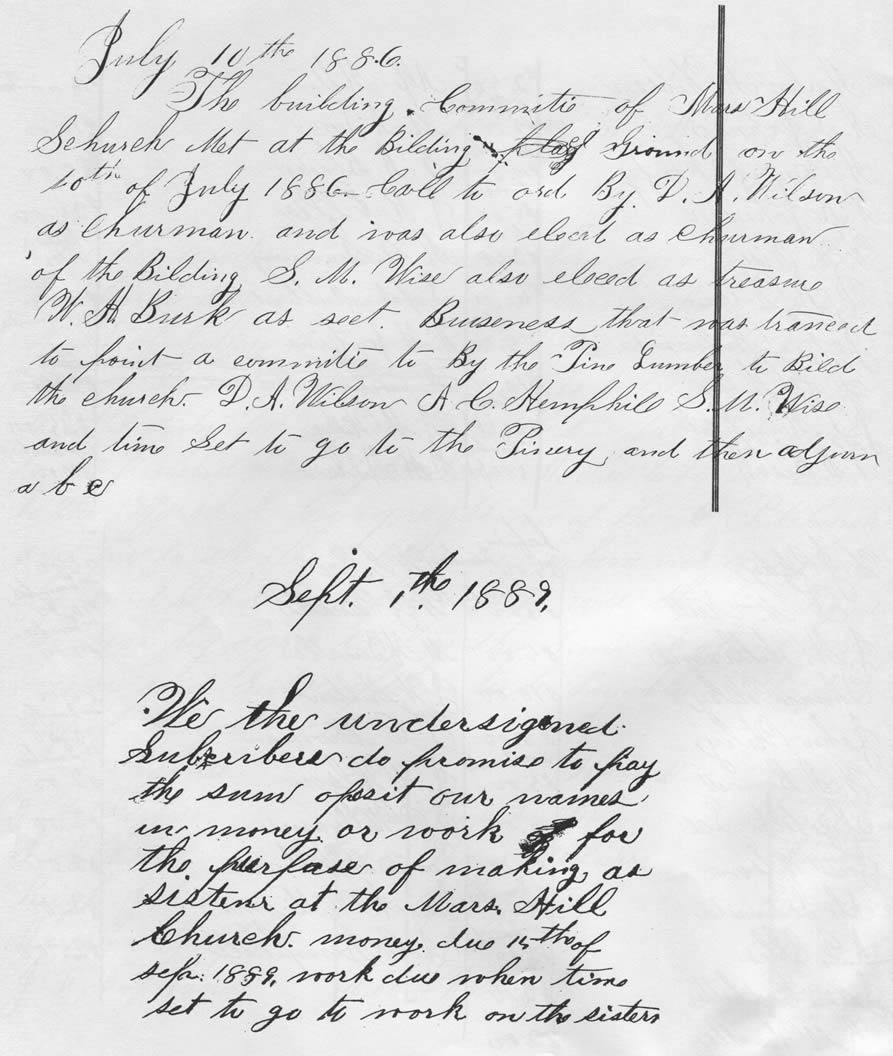 July 10th 1886.
The building Committie of Mars Hill
Schurch Met at the Bilding Ground on the
10th of July 1886 Call to ord By D. A. Wilson
as Churman and was also elecrt as Churman
of the Bilding S. M. Wise also eleced as treasure
W. H. Burk as sect. Buiseness that was tranced
to point a committie to By the Pine Lumber to Bild
the church. D. A. Wilson A C. Hemphile S. M. Wise
and time Set to go to the Pinery and then adjurn
a b c
Sept. 1th 1889,
We the undersigned
Subcribers do promise to pay
the sum opsit our names
in money or work for
the purpase of making as
sistern at the Mars Hill
Church. money due 15th of
sep. 1889, work due when time
set to go to work on the sistern